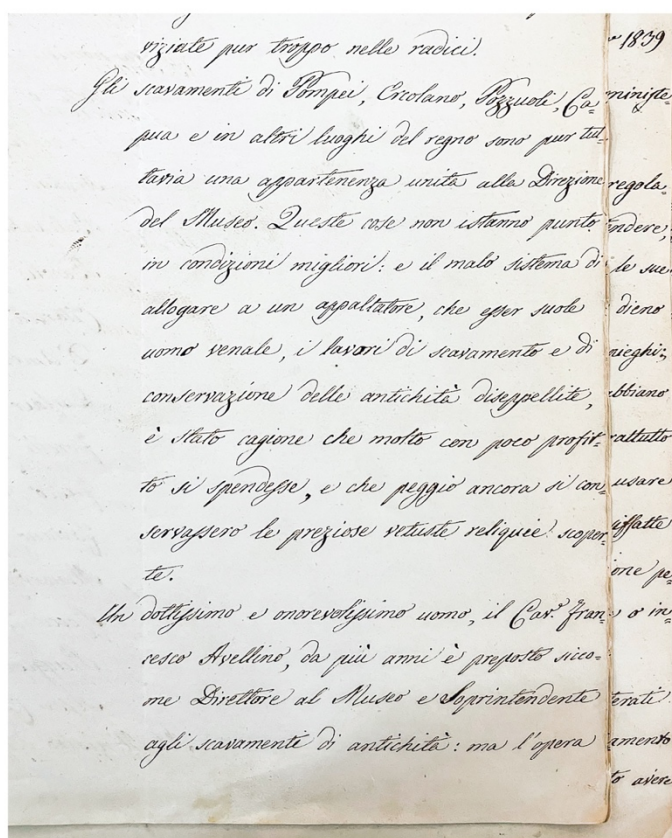 viziate pur troppo nelle radici.
Gli scavamenti di Pompei, Ercolano, Pozzuoli, Ca=
pua e in altri luoghi del regno sono pur tut=
tavia una appartenenza unita alla Direzione
del Museo. Queste cose non istanno punto
in condizioni migliori: e il malo sistema di
allogare a un appaltatore, che esser suole
uomo venale, i lavori di scavamento e di
conservazione delle antichità diseppellite,
è stato cagione che molto con poco profit=
to si spendesse, e che peggio ancora si con=
servassero le preziose vetuste reliquie scoper=
te.
Un dottissimo e onorevolissimo uomo, il Cav.r Fran=
cesco Avellino, da più anni è preposto sicco=
me Direttore al Museo e Soprintendente
agli scavamenti di antichità: ma l'opera
1839
ministe
regola=
ndere,
le sue
dieno
nieghi;
bbiano
rattutto
usare
iffatte
ione pe
o in=
terati
amento
to avere